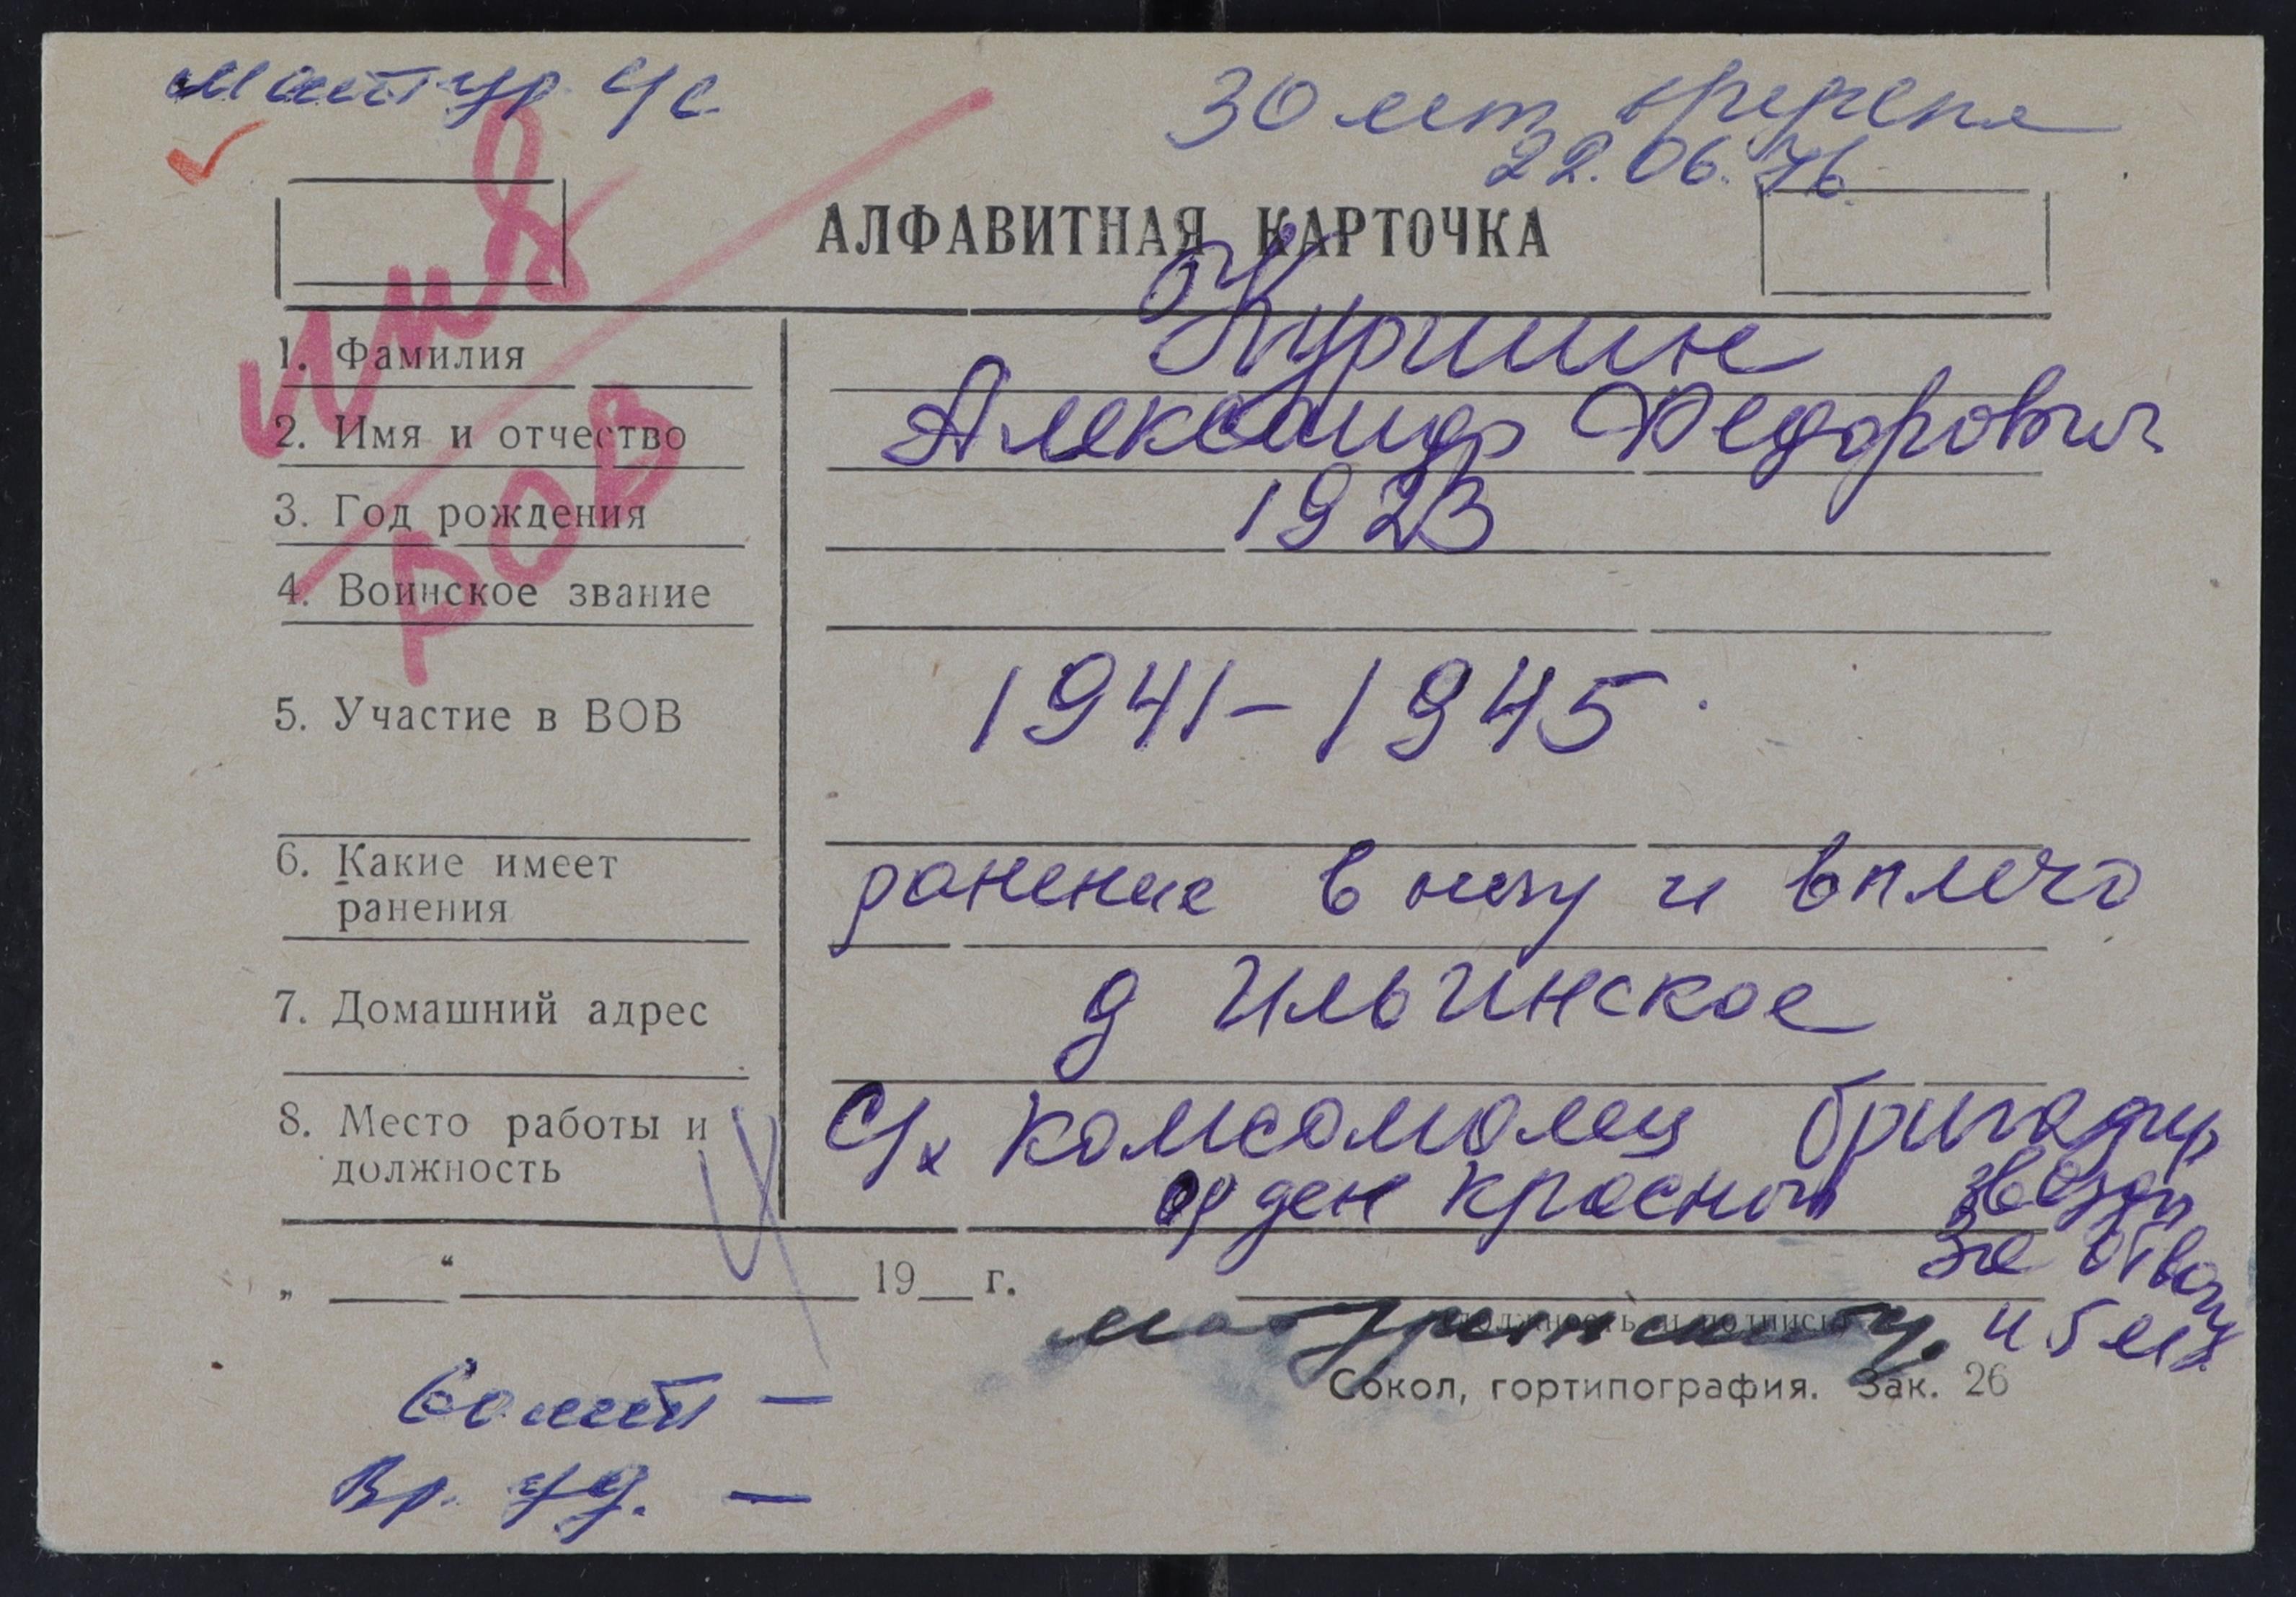 30 лет вручена
22.06.76.
АЛФАВИТНАЯ КАРТОЧКА
инв
РОВ
1. Фамилия Куршин
2. Имя и отчество Александр Федорович
3. Год рождения 1923
4. Воинское звание
5. Участие в ВОВ 1941-1945.
6. Какие имеет ранения ранение в ногу и в плечо
7. Домашний адрес д Ильинское
8. Место работы и должность с/х Комсомолец бригадир
орден красной звезды
за отвагу
и 5 мед.
„ “ 19 г.
должность и подпись
Сокол, гортипография. Зак. 26
60 лет —
Вр. уд. —